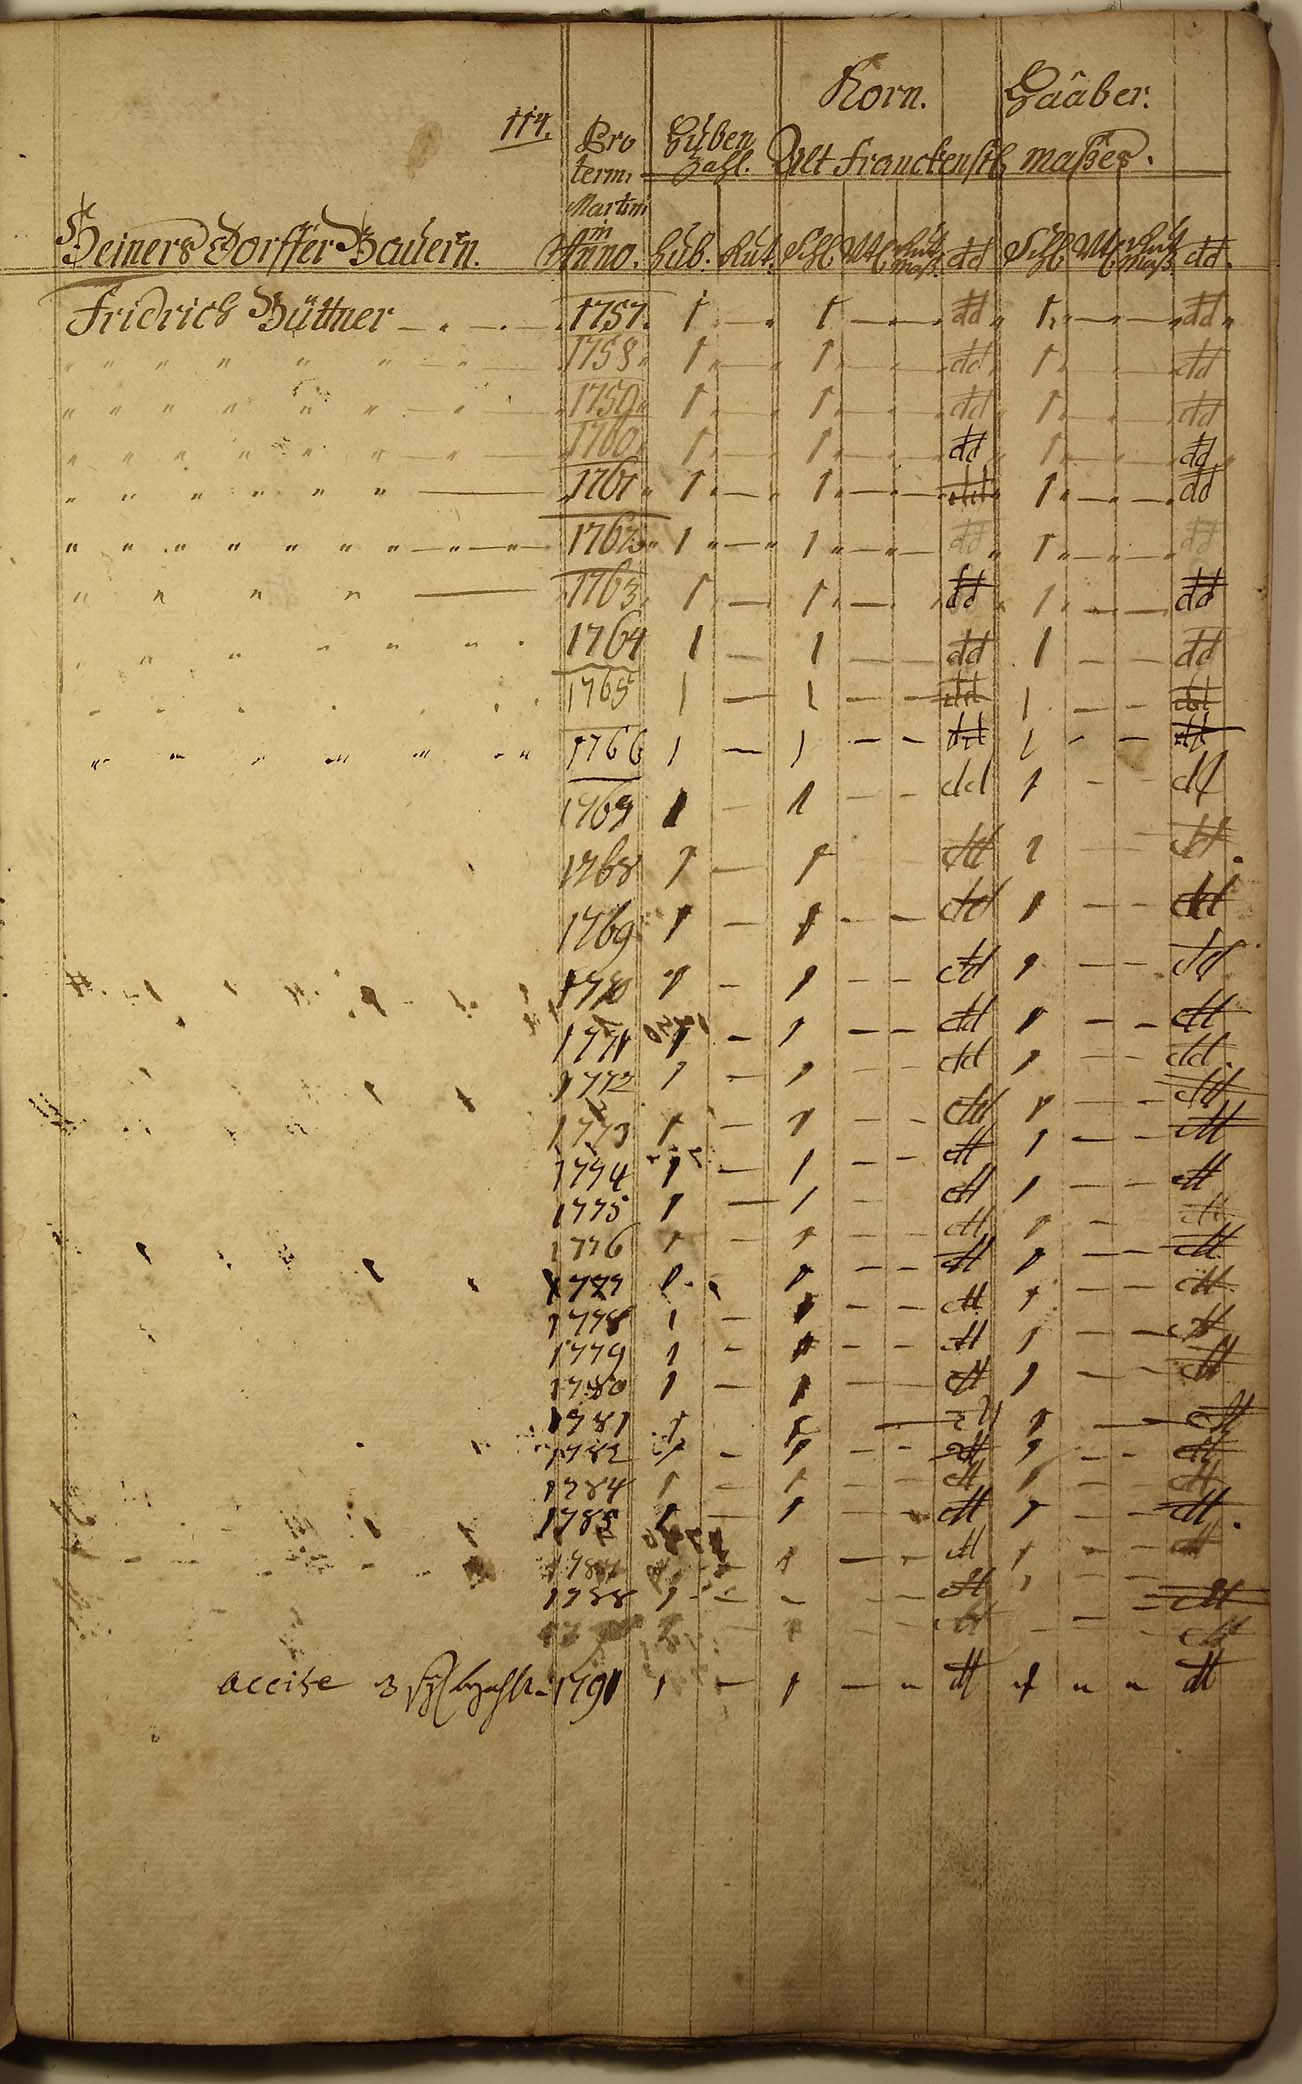 Korn. Haaber.
114. Pro Huben
term: Zahl. Alt Franckenstl. maßes.
Martini
in
Heinersdorffer Bauern. Anno. Hub. Rut. Schl Vtl dd Schl Vtl dd.
Fridrich Hüttner — . — . — 1757. 1 . — . 1 . — . — . dd „ 1 „ — „ — „ dd „
„ „ „ „ „ „ — „ — 1758 „ 1 „ — „ 1 „ — „ — „ dd „ 1 „ — „ — „ dd
„ „ „ „ „ „ — „ — 1759 „ 1 „ — „ 1 „ — „ — „ dd „ 1 „ — „ — „ dd
„ „ „ „ „ „ — „ — 1760 „ 1 „ — „ 1 „ — „ — „ dd „ 1 „ — „ — „ dd „
„ „ „ „ „ „ — 1761 „ 1 „ — „ 1 „ — „ — dd „ 1 „ — „ — „ dd
„ „ „ „ „ „ „ „ — „ — „ — 1762 „ 1 „ — „ 1 „ — „ — dd „ 1 „ — „ — „ dd
„ „ „ „ — 1763 „ 1 „ — „ 1 „ — „ dd „ 1 „ — — dd
„ „ „ „ „ „ „ . 1764 1 — 1 — — dd 1 — — dd
1765 1 — 1 — — dd 1 — — dd
„ „ „ „ „ „ „ 1766 1 — 1 — — dd 1 — — dd
1769 1 — 1 — — dd 1 — — dd
1768 1 — 1 — dd 1 — — dd
1769 1 — 1 — — dd 1 — — dd
1770 1 — 1 — — dd 1 — — dd
1771 1 — 1 — — dd 1 — — dd
1772 1 — 1 — — dd 1 — — dd.
1773 1 — 1 — — dd 1 — — dd
1774 1 — 1 — — dd 1 — — dd
1775 1 — 1 — — dd 1 — — dd
1776 1 — 1 — — dd 1 — — dd
1777 1 - 1 — — dd 1 — — dd
1778 1 — 1 — — dd 1 — — dd
1779 1 — 1 — — dd 1 — — dd
1780 1 — 1 — — dd 1 — — dd
1781 1 1 — dd 1 — dd
1782 1 — 1 — — dd 1 — — dd
1784 1 — 1 — — dd 1 — — dd
1785 1 — 1 — — dd 1 — — dd.
1 — — dd 1 — — dd
1788 1 — — — — dd 1 — — dd
dd — — — dd
accise 3 1791 1 — 1 — — dd 1 — — dd